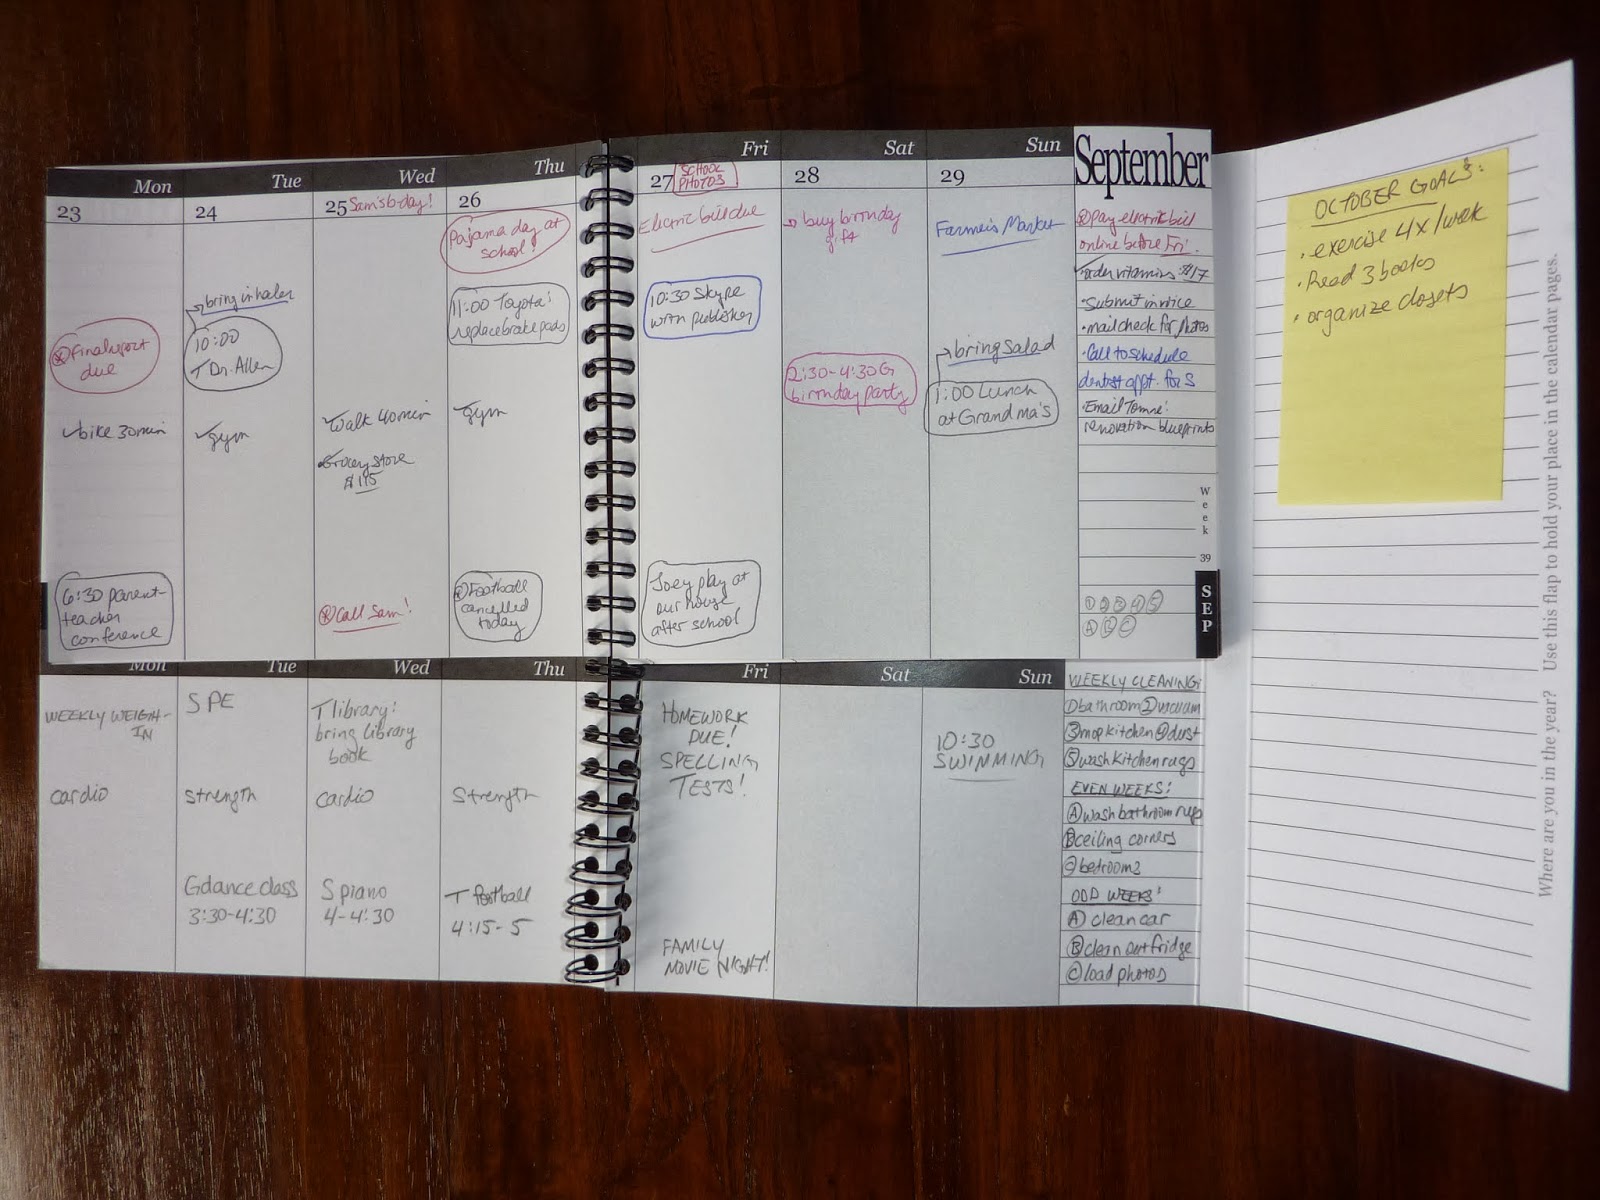 Mon
23
Final report
due
✓bike 30min
6:30 parent-
teacher
conference
Tue
24
bring inhaler
10:00
T Dr. Allen
✓gym
Wed
25 Sam's b-day!
✓Walk 40min
✓Grocery store
$115
Call Sam!
Thu
26
Pajama day at
school!
11:00 Toyota:
replace brake pads
✓gym
Football
cancelled
today
Fri
27
SCHOOL
PHOTOS
Electric bill due
10:30 Skype
with publisher
Joey play at
our house
after school
Sat
28
buy birthday
gift
2:30-4:30 G
birthday party
Sun
29
Farmer's Market
bring salad
1:00 Lunch
at Grandma's
September
pay electric bill
online before Fri.
✓order vitamins: $17
·Submit invoice
·mail check for photos
·Call to schedule
dentist appt. for S
·Email
renovation blueprints
Week
39
1 2 3 4 5
A B C
SEP
Mon
WEEKLY WEIGH-
IN
cardio
Tue
S PE
strength
G dance class
3:30-4:30
Wed
T library:
bring library
book
cardio
S piano
4-4:30
Thu
Strength
T football
4:15-5
Fri
HOMEWORK
DUE!
SPELLING
TESTS!
FAMILY
MOVIE NIGHT!
Sat
Sun
10:30
SWIMMING
WEEKLY CLEANING:
1 bathroom 2 vacuum
3 mop kitchen 4 dust
5 wash kitchen rugs
EVEN WEEKS:
A wash bathroom rugs
B ceiling corners
C bedrooms
ODD WEEKS:
A clean car
B clean out fridge
C load photos
OCTOBER GOALS:
·exercise 4x/week
·Read 3 books
·organize closets
Where are you in the year? Use this flap to hold your place in the calendar pages.